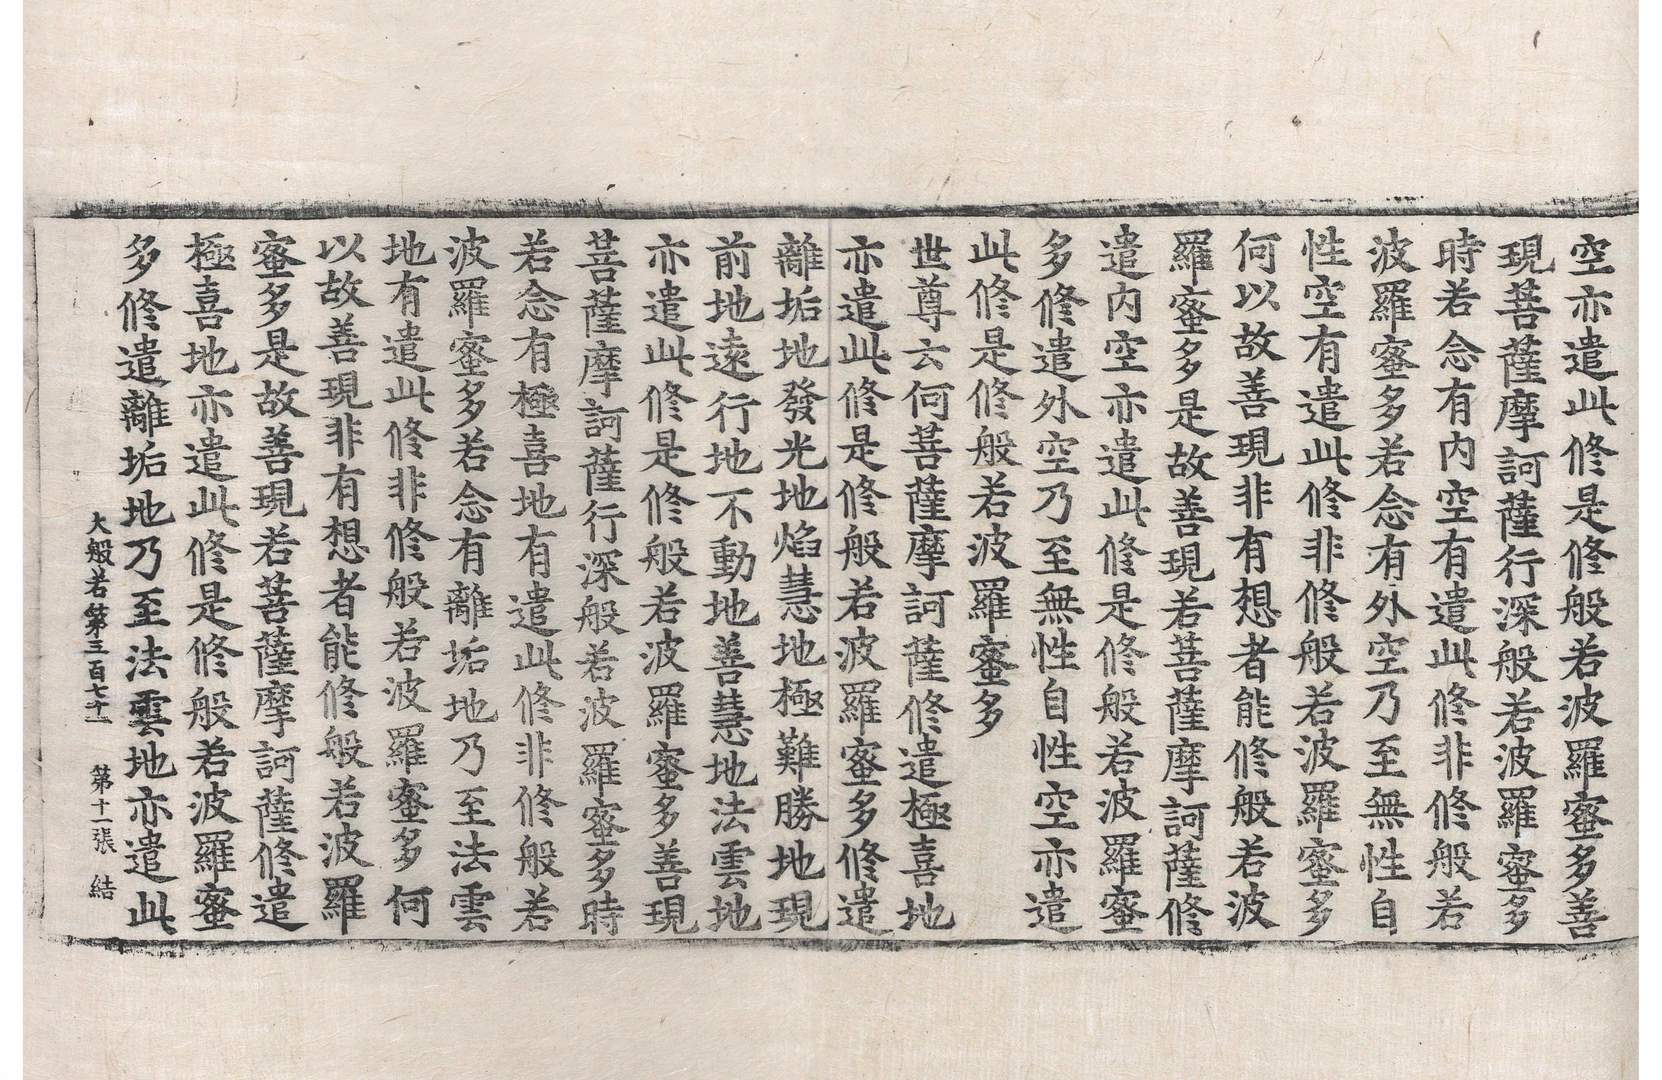 空亦遣此修是修般若波羅蜜多善
現菩薩摩訶薩行深般若波羅蜜多
時若念有内空有遣此修非修般若
波羅蜜多若念有外空乃至無性自
性空有遣此修非修般若波羅蜜多
何以故善現非有想者能修般若波
羅蜜多是故善現若菩薩摩訶薩修
遣内空亦遣此修是修般若波羅蜜
多修遣外空乃至無性自性空亦遣
此修是修般若波羅蜜多
世尊云何菩薩摩訶薩修遣極喜地
亦遣此修是修般若波羅蜜多修遣
離垢地發光地焰慧地極難勝地現
前地遠行地不動地善慧地法雲地
亦遣此修是修般若波羅蜜多善現
菩薩摩訶薩行深般若波羅蜜多時
若念有極喜地有遣此修非修般若
波羅蜜多若念有離垢地乃至法雲
地有遣此修非修般若波羅蜜多何
以故善現非有想者能修般若波羅
蜜多是故善現若菩薩摩訶薩修遣
極喜地亦遣此修是修般若波羅蜜
多修遣離垢地乃至法雲地亦遣此
大般若第三百七十一 第十一張 結